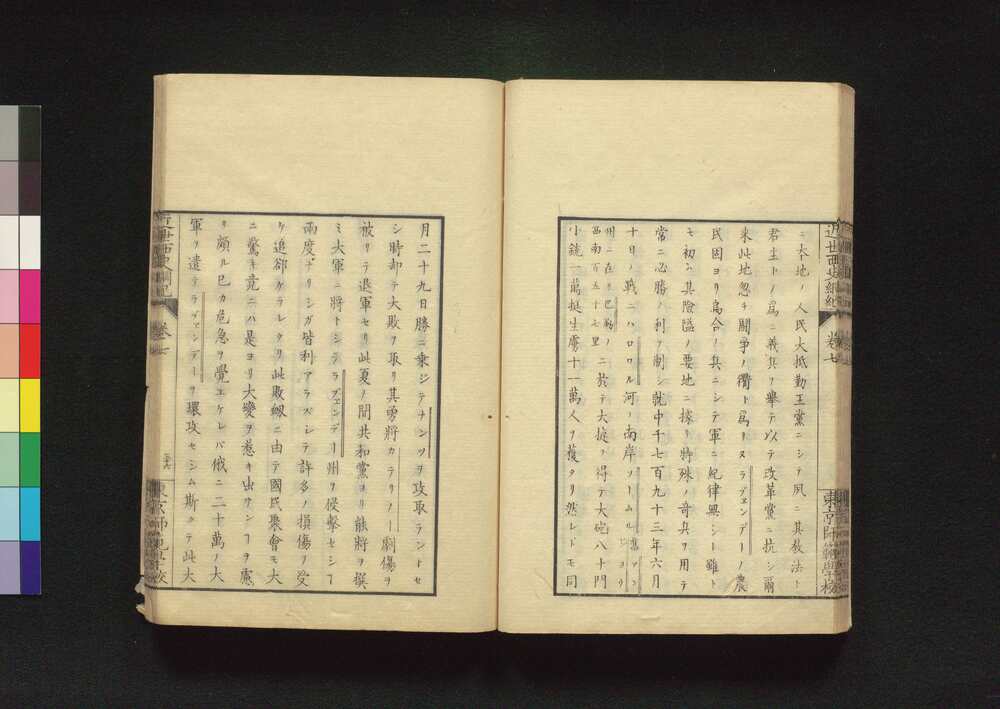 ニ本地ノ人民大抵勤王黨ニシテ夙ニ其教法ト
君主トノ為ニ義兵ヲ擧テ以テ改革黨ニ抗シ爾
来此地忽チ鬪争ノ衢ト為リヌラヴェンデーノ農
民固ヨリ烏合ノ兵ニシテ軍ニ紀律無シト雖ト
モ初ニ其險隘ノ要地ニ據リ特殊ノ奇兵ヲ用テ
常ニ必勝ノ利ヲ制シ就中千七百九十三年六月
十日ノ戰ニハロワル河ノ南岸ソームル
州ニ在リ巴勒ノ
西南百五十七里
ニ於テ大捷ヲ得テ大砲八十門
小銃一萬挺生虜十一萬人ヲ獲タリ然レドモ同
近世西史綱紀
卷七
東京師範學校
月二十九日勝ニ乗ジテナンツヲ攻取ラントセ
シ時却テ大敗ヲ取リ其勇將カテリノー劇傷ヲ
被リテ退軍セリ此夏ノ間共和黨ヨリ能將ヲ撰
ミ大軍ニ將トシテラヴェンデー州ヲ侵撃セシ
兩度ナリシガ皆利アラズシテ許多ノ損傷ヲ受
ケ追卻ケラレタリ此敗衂ニ由テ國民聚會モ大
ニ驚キ竟ニハ是ヨリ大變ヲ惹キ出サンヿヲ慮
リ頗ル已カ危急ヲ覺エケレバ俄ニ二十萬ノ大
軍ヲ遣テラヴェンデーヲ環攻セシム斯クテ此大
近世西史綱紀
卷七
東京師範學校